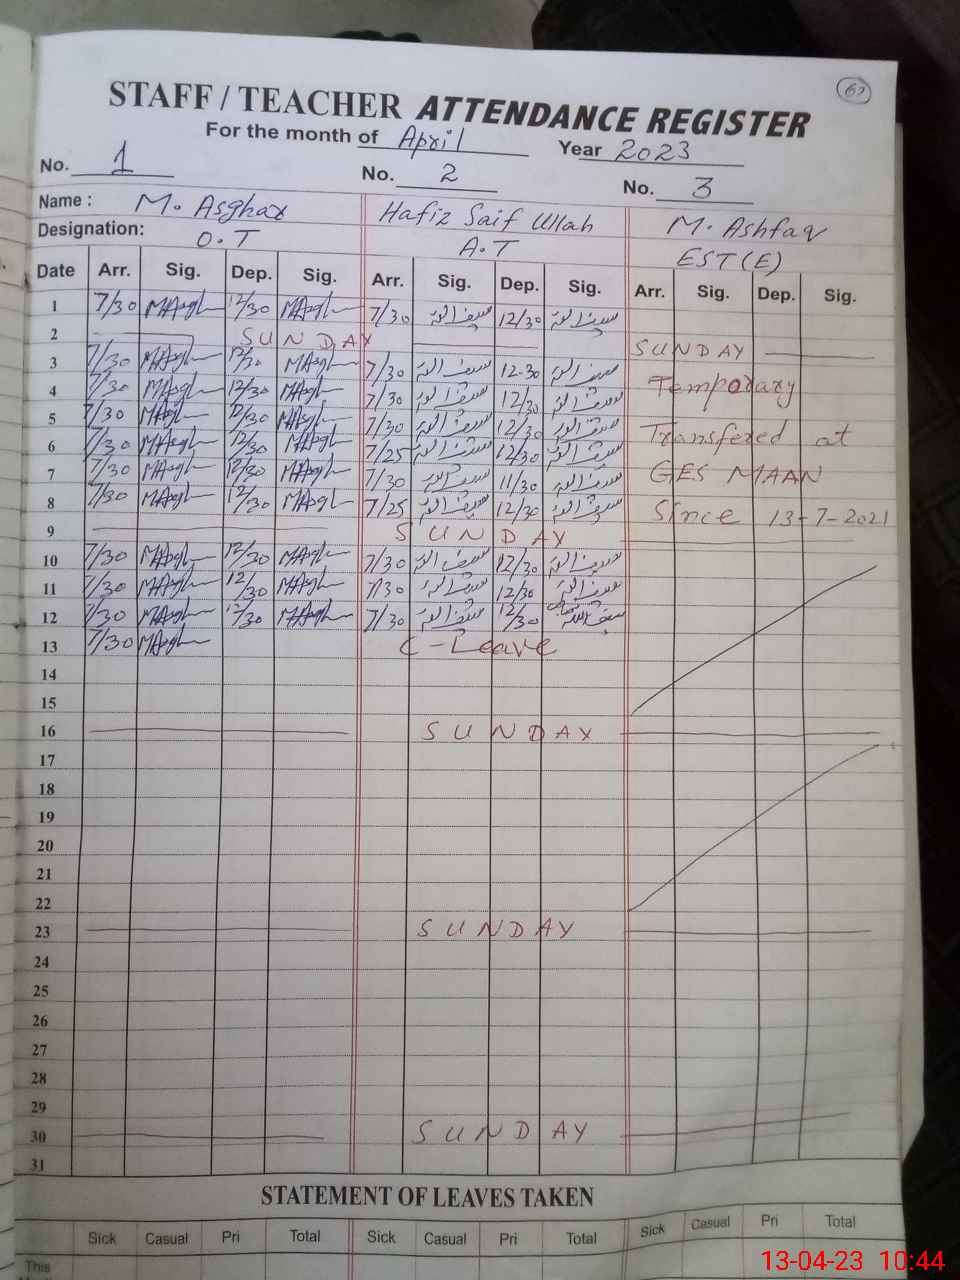 62
STAFF / TEACHER ATTENDANCE REGISTER
For the month of April Year 2023
No. 1 No. 2 No. 3
Name : M. Asghar Hafiz Saif Ullah M. Ashfaq
Designation: O.T A.T EST (E)
Date Arr. Sig. Dep. Sig. Arr. Sig. Dep. Sig. Arr. Sig. Dep. Sig.
1 7/30 MAsgh 12/30 MAsgh 7/30 سیف اللہ 12/30 سیف اللہ
2 SUNDAY SUNDAY
3 7/30 MAsgh 12/30 MAsgh 7/30 سیف اللہ 12-30 سیف اللہ Temporary
4 7/30 MAsgh 12/30 MAsgh 7/30 سیف اللہ 12/30 سیف اللہ
5 7/30 MAsgh 12/30 MAsgh 7/30 سیف اللہ 12/30 سیف اللہ Transfered at
6 7/30 MAsgh 12/30 MAsgh 7/25 سیف اللہ 12/30 سیف اللہ
7 7/30 MAsgh 12/30 MAsgh 7/30 سیف اللہ 11/30 سیف اللہ GES MAAN
8 7/30 MAsgh 12/30 MAsgh 7/25 سیف اللہ 12/30 سیف اللہ Since 13-7-2021
9 SUNDAY
10 7/30 MAsgh 12/30 MAsgh 7/30 سیف اللہ 12/30 سیف اللہ
11 7/30 MAsgh 12/30 MAsgh 7/30 سیف اللہ 12/30 سیف اللہ
12 7/30 MAsgh 12/30 MAsgh 7/30 سیف اللہ 12/30 سیف اللہ
13 7/30 MAsgh C-Leave
14
15
16 SUNDAY
17
18
19
20
21
22
23 SUNDAY
24
25
26
27
28
29
30 SUNDAY
31
STATEMENT OF LEAVES TAKEN
Sick Casual Pri Total Sick Casual Pri Total Sick Casual Pri Total
This
13-04-23 10:44